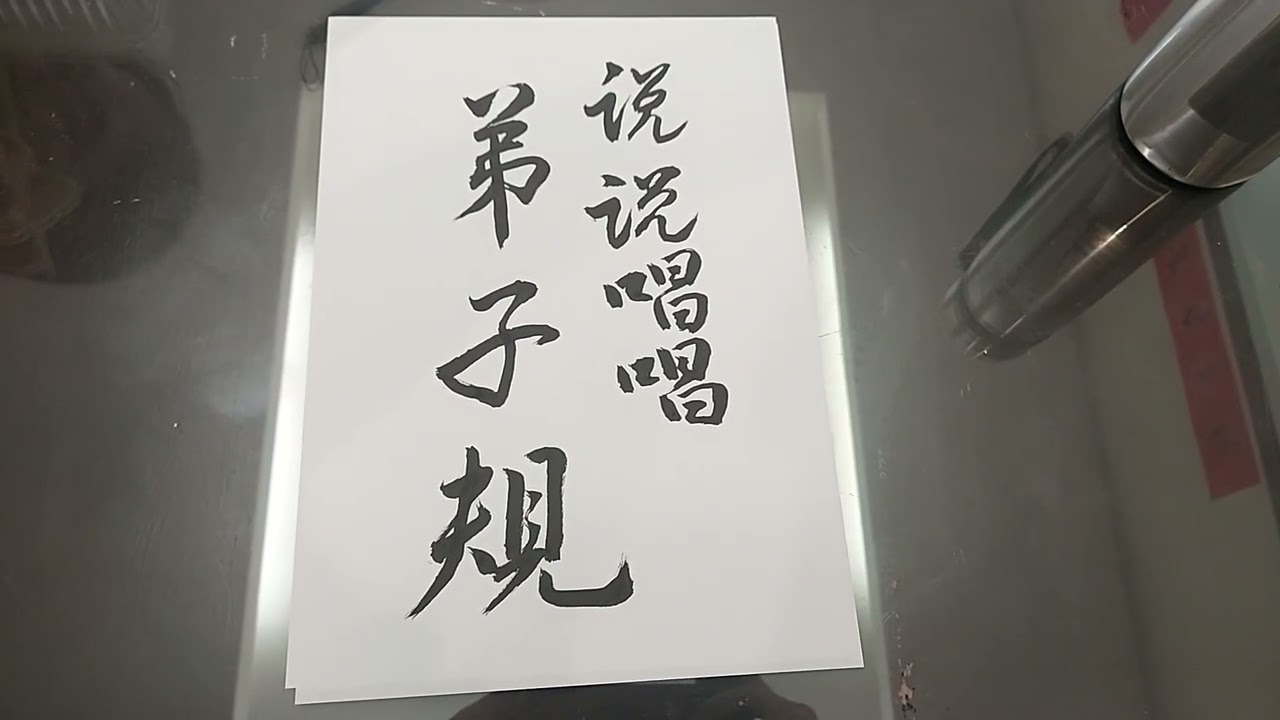 说说唱唱
弟子规